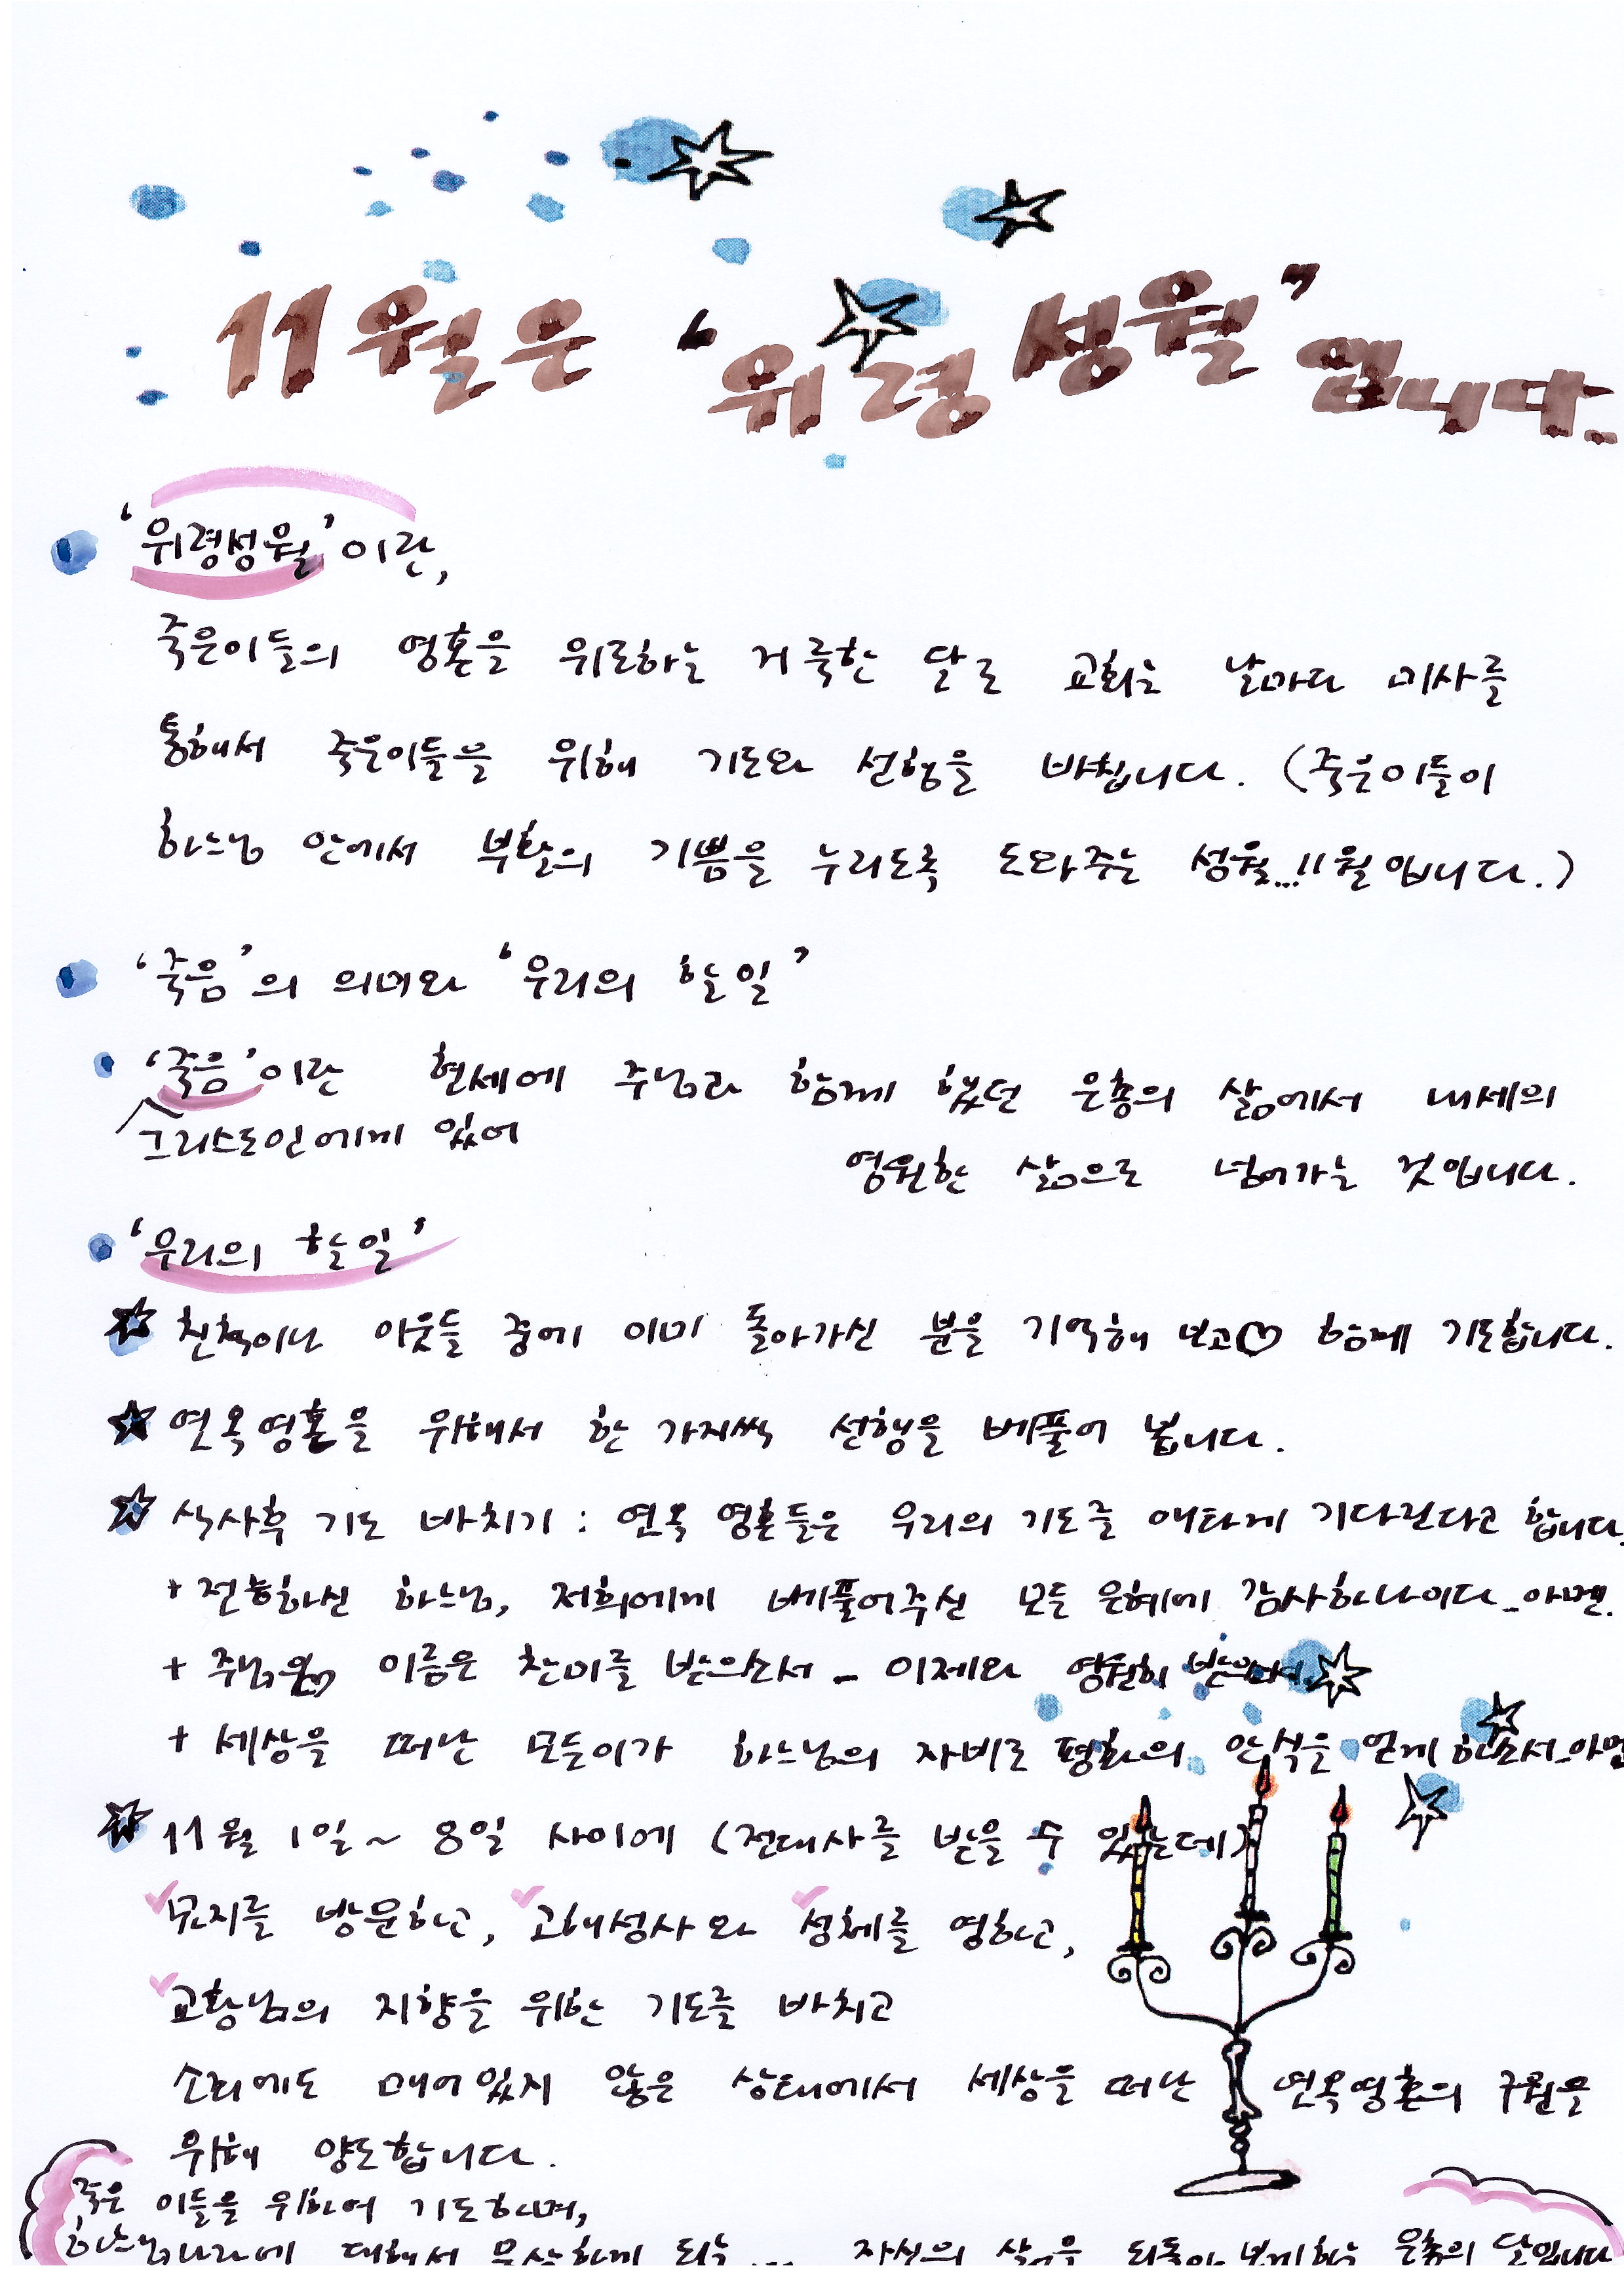 11월은 '위령성월" 입니다.
'위령성월'이란,
죽은이들의 영혼을 위로하는 거룩한 달로 교회는 날마다 미사를
통해서 죽은이들을 위해 기도와 선행을 바칩니다. (죽은이들이
하느님 안에서 부활의 기쁨을 누리도록 도와주는 성월...11월입니다.)
'죽음'의 의미와 '우리의 할일'
'죽음'이란 현세에 주님과 함께 했던 은총의 삶에서 내세의
그리스도인에게 있어
영원한 삶으로 넘어가는 것입니다.
'우리의 할일'
친척이나 이웃들 중에 이미 돌아가신 분을 기억해 보고♡ 함께 기도합니다.
연옥영혼을 위해서 한 가지씩 선행을 베풀어 봅니다.
식사후 기도 바치기 : 연옥 영혼들은 우리의 기도를 애타게 기다린다고 합니다.
+ 전능하신 하느님, 저희에게 베풀어주신 모든 은혜에 감사하나이다-아멘.
+ 주님의 이름은 찬미를 받으소서 - 이제와 영원히 받으소서.
+ 세상을 떠난 모든이가 하느님의 자비로 평화의 안식을 얻게 하소서-아멘
11월 1일~ 8일 사이에 (전대사를 받을 수 있는데)
묘지를 방문하고, 고해성사와 성체를 영하고,
교황님의 지향을 위한 기도를 바치고
소죄에도 매여있지 않은 상태에서 세상을 떠난 연옥영혼의 구원을
위해 양도합니다.
죽은 이들을 위하여 기도하며,
하느님나라에 대해서 묵상하게 되는... 자신의 삶을 되돌아 보게하는 은총의 달입니다